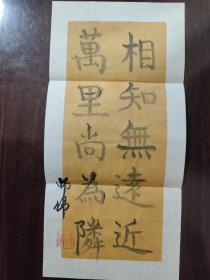 相知無遠近
萬里尚為隣